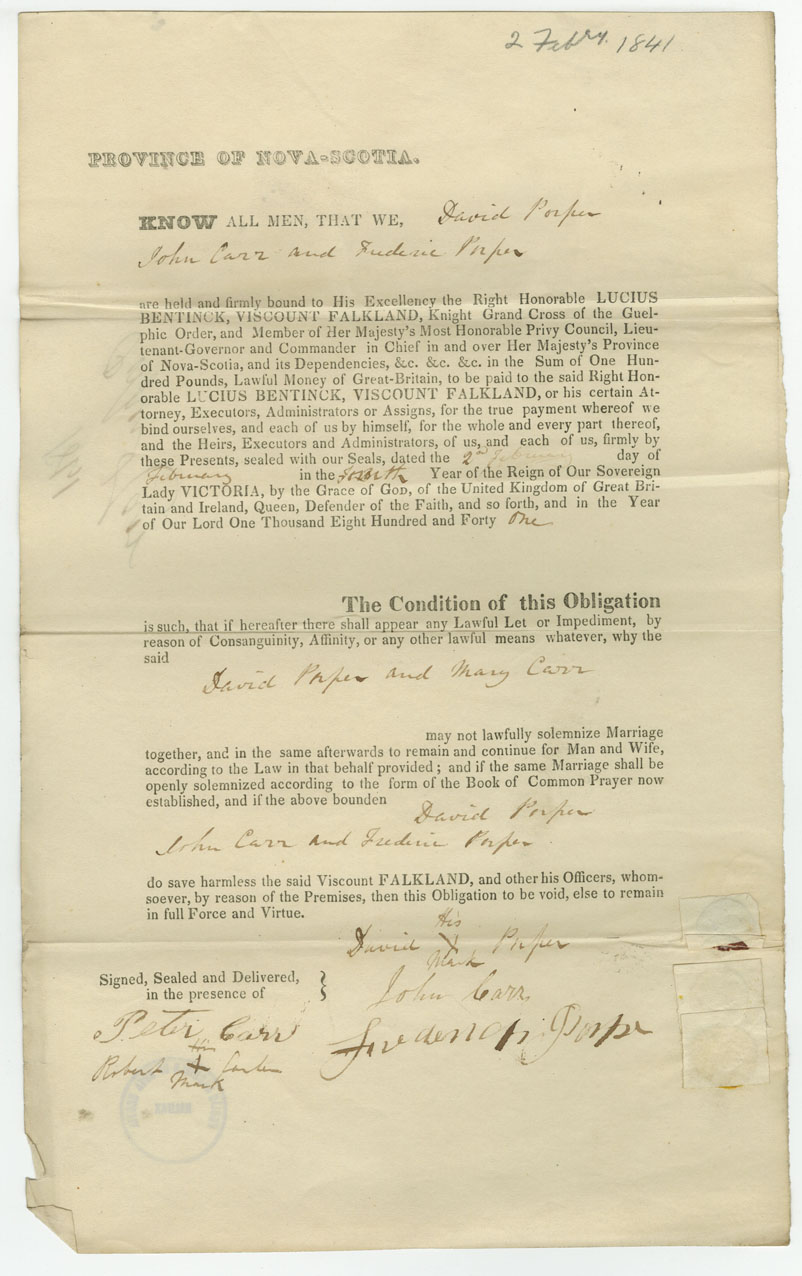 2 Febry. 1841
PROVINCE OF NOVA-SCOTIA.
KNOW ALL MEN, THAT WE, David Porper
John Carr and Frederic Porper
are held and firmly bound to His Excellency the Right Honorable LUCIUS
BENTINCK, VISCOUNT FALKLAND, Knight Grand Cross of the Guel-
phic Order, and Member of Her Majesty's Most Honorable Privy Council, Lieu-
tenant-Governor and Commander in Chief in and over Her Majesty's Province
of Nova-Scotia, and its Dependencies, &c. &c. &c. in the Sum of One Hun-
dred Pounds, Lawful Money of Great-Britain, to be paid to the said Right Hon-
orable LUCIUS BENTINCK, VISCOUNT FALKLAND, or his certain At-
torney, Executors, Administrators or Assigns, for the true payment whereof we
bind ourselves, and each of us by himself, for the whole and every part thereof,
and the Heirs, Executors and Administrators, of us, and each of us, firmly by
these Presents, sealed with our Seals, dated the 2nd February day of
February in the fourth Year of the Reign of Our Sovereign
Lady VICTORIA, by the Grace of GOD, of the United Kingdom of Great Bri-
tain and Ireland, Queen, Defender of the Faith, and so forth, and in the Year
of Our Lord One Thousand Eight Hundred and Forty One
The Condition of this Obligation
is such, that if hereafter there shall appear any Lawful Let or Impediment, by
reason of Consanguinity, Affinity, or any other lawful means whatever, why the
said
David Porper and Mary Carr
may not lawfully solemnize Marriage
together, and in the same afterwards to remain and continue for Man and Wife,
according to the Law in that behalf provided; and if the same Marriage shall be
openly solemnized according to the form of the Book of Common Prayer now
established, and if the above bounden David Porper
John Carr and Frederic Porper
do save harmless the said Viscount FALKLAND, and other his Officers, whom-
soever, by reason of the Premises, then this Obligation to be void, else to remain
in full Force and Virtue.
His
David X Porper
Mark
Signed, Sealed and Delivered,
in the presence of
John Carr
Peter Carr
Frederick Porper
His
Robert X
Mark